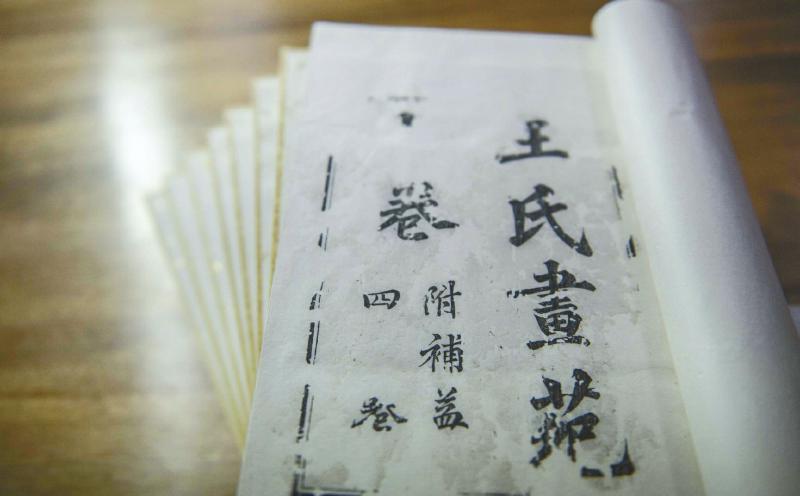 王氏畫苑
卷
附補益
四卷